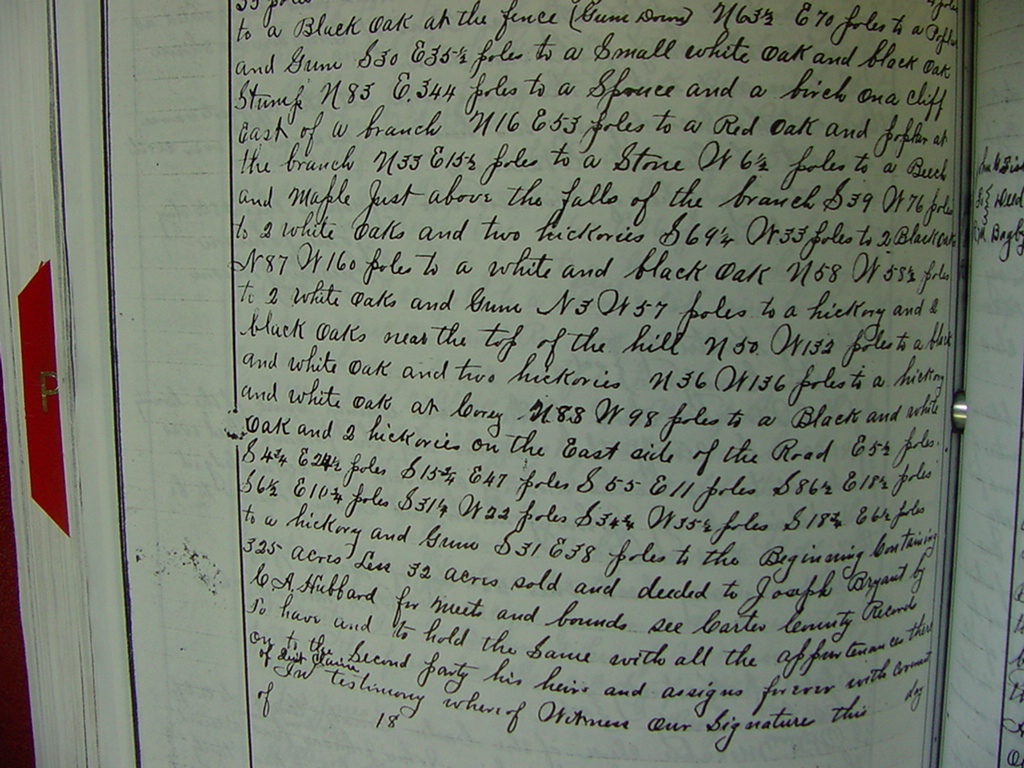 to a Black Oak at the fence (Gum Down) N63½ E70 poles to a Poplar
and Gum S30 E35½ poles to a Small white Oak and black Oak
Stump N83 E.344 poles to a Spruce and a birch on a cliff
East of a branch N16 E53 poles to a Red Oak and poplar at
the branch N33 E15½ poles to a Stone W6½ poles to a Beech
and Maple Just above the falls of the branch S39 W76 poles
to 2 white Oaks and two hickories S69¼ W33 poles to 2 Black Oaks
N87 W160 poles to a white and black Oak N58 W58½ poles
to 2 white Oaks and Gum N3 W57 poles to a hickory and 2
black Oaks near the top of the hill N50 W132 poles to a black
and white Oak and two hickories N36 W136 poles to a hickory
and white Oak at Corey N88 W98 poles to a Black and white
Oak and 2 hickories on the East side of the Road E5½ poles
S4¾ E24½ poles S15¾ E47 poles S55 E11 poles S86½ E18½ poles
S6½ E10¾ poles S31¼ W22 poles S34¾ W35½ poles S18¾ E6½ poles
to a hickory and Gum S31 E38 poles to the Beginning Containing
325 acres Less 32 acres sold and deeded to Joseph Bryant by
C A Hubbard for meets and bounds see Carter County Records
To have and to hold the Same with all the appurtenances there
on to the Second party his heirs and assigns forever with covenant
of Quit Claim
In testimony whereof Witness Our Signature this day
of 18
P
Deed
Bagby